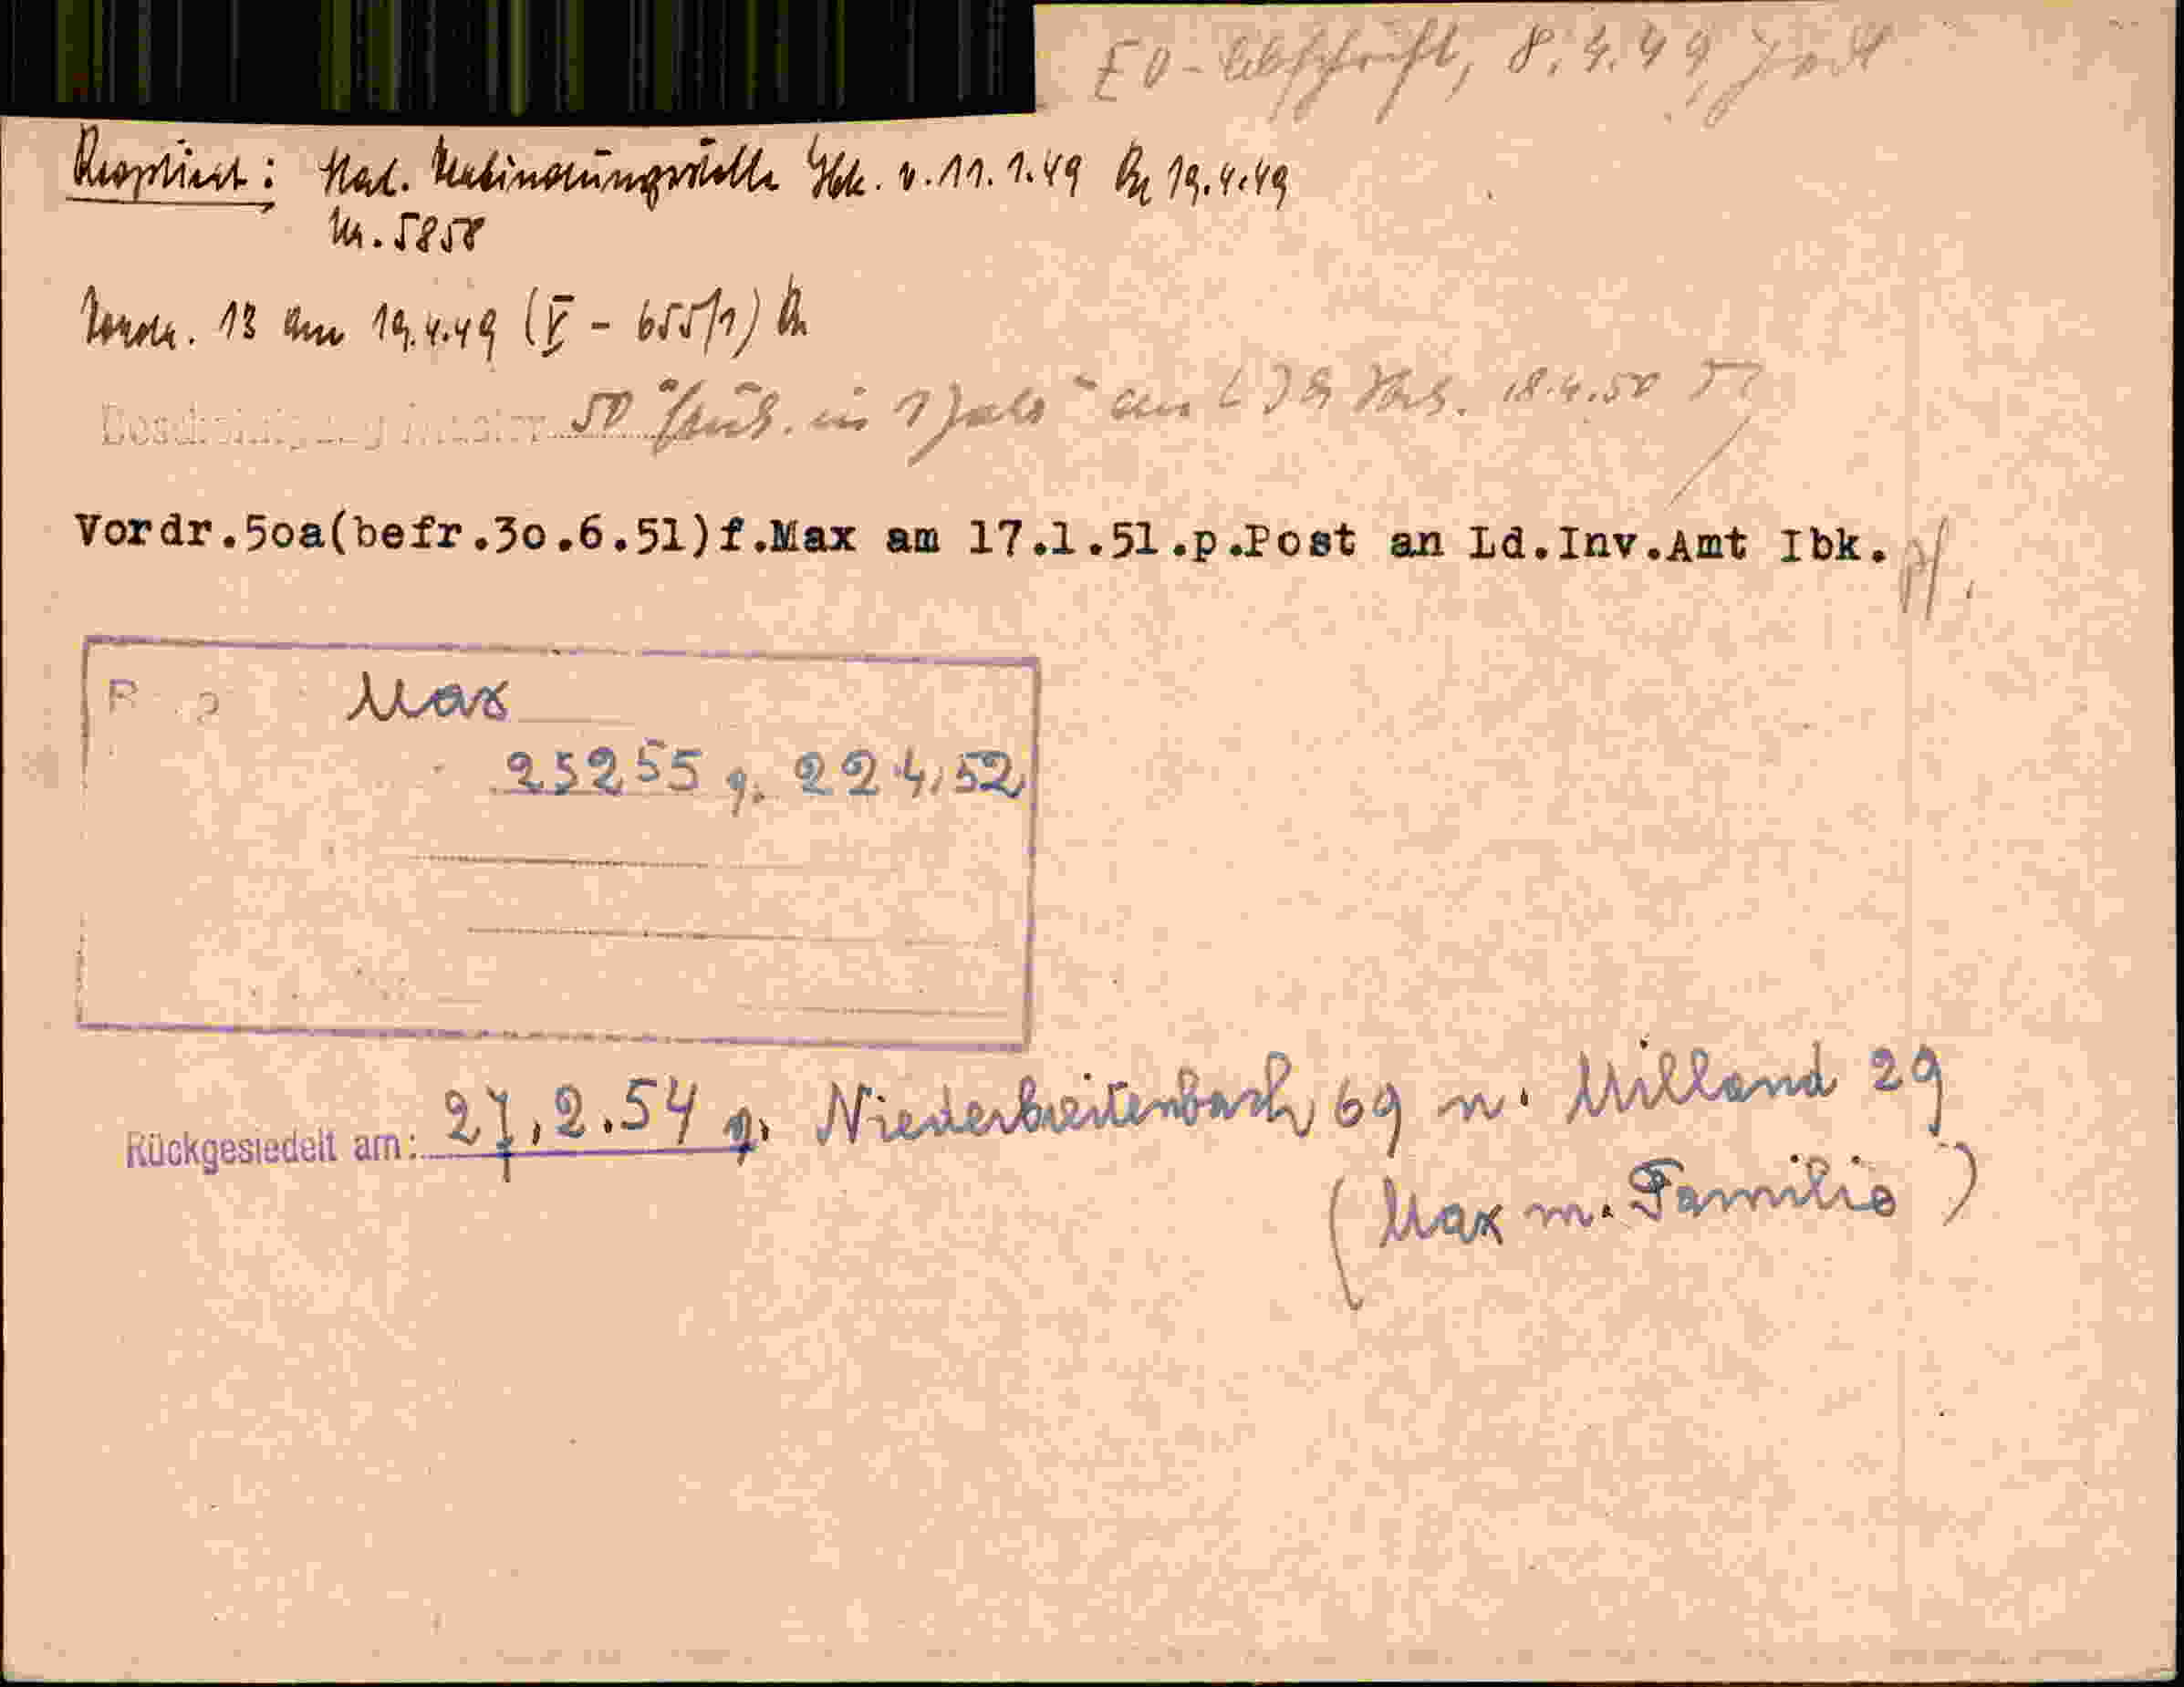 EO-Abschrift, 8.4.49
Reoptiert: Ital. Verbindungsstelle Ibk. v. 11.1.49 19.4.49
Nr. 5858
Vordr. 13 am 19.4.49 (V - 655/1)
Bescheinigung Muster 50 in 1 am 18.4.50
Vordr.5oa(befr.3o.6.51)f.Max am 17.1.51.p.Post an Ld.Inv.Amt Ibk.
Max
25255 g. 22.4.52
Rückgesiedelt am: 27.2.54 g. Niederbreitenbach 69 n. Milland 29
(Max m. Familie)